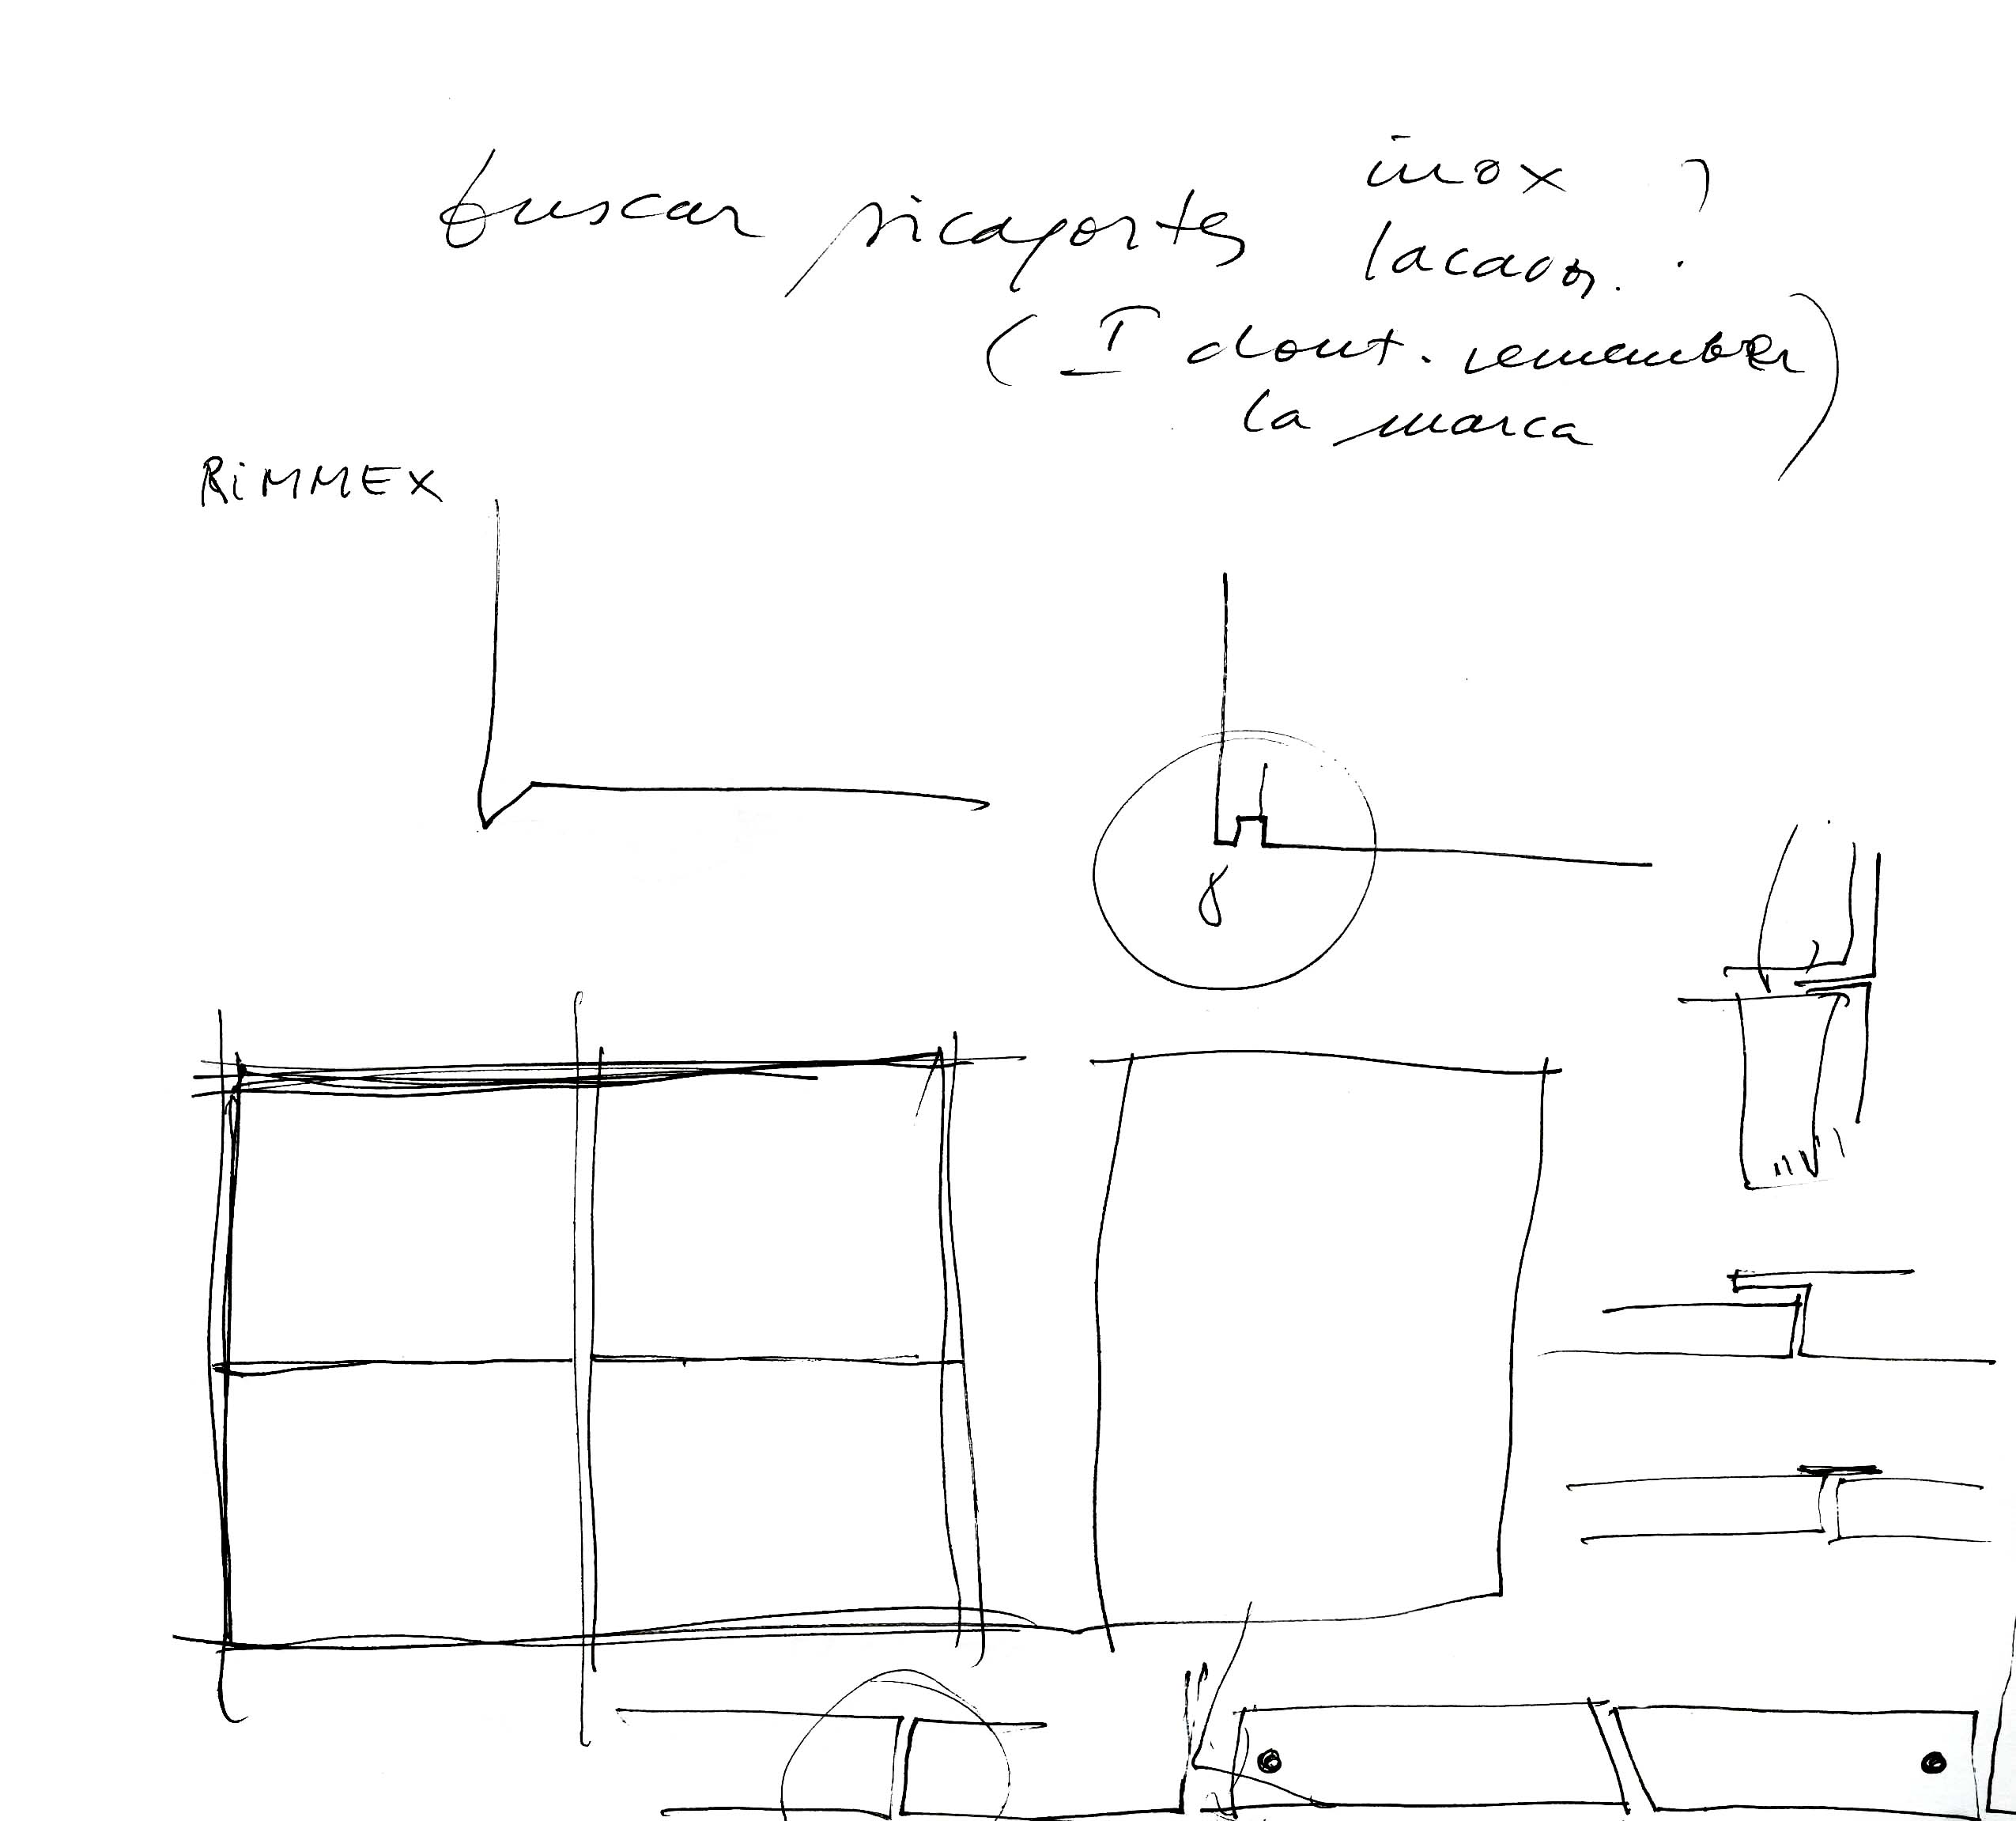 inox ?
buscar picaportes
lacados.
( I dont. remember )
la marca
RiMMEX
8